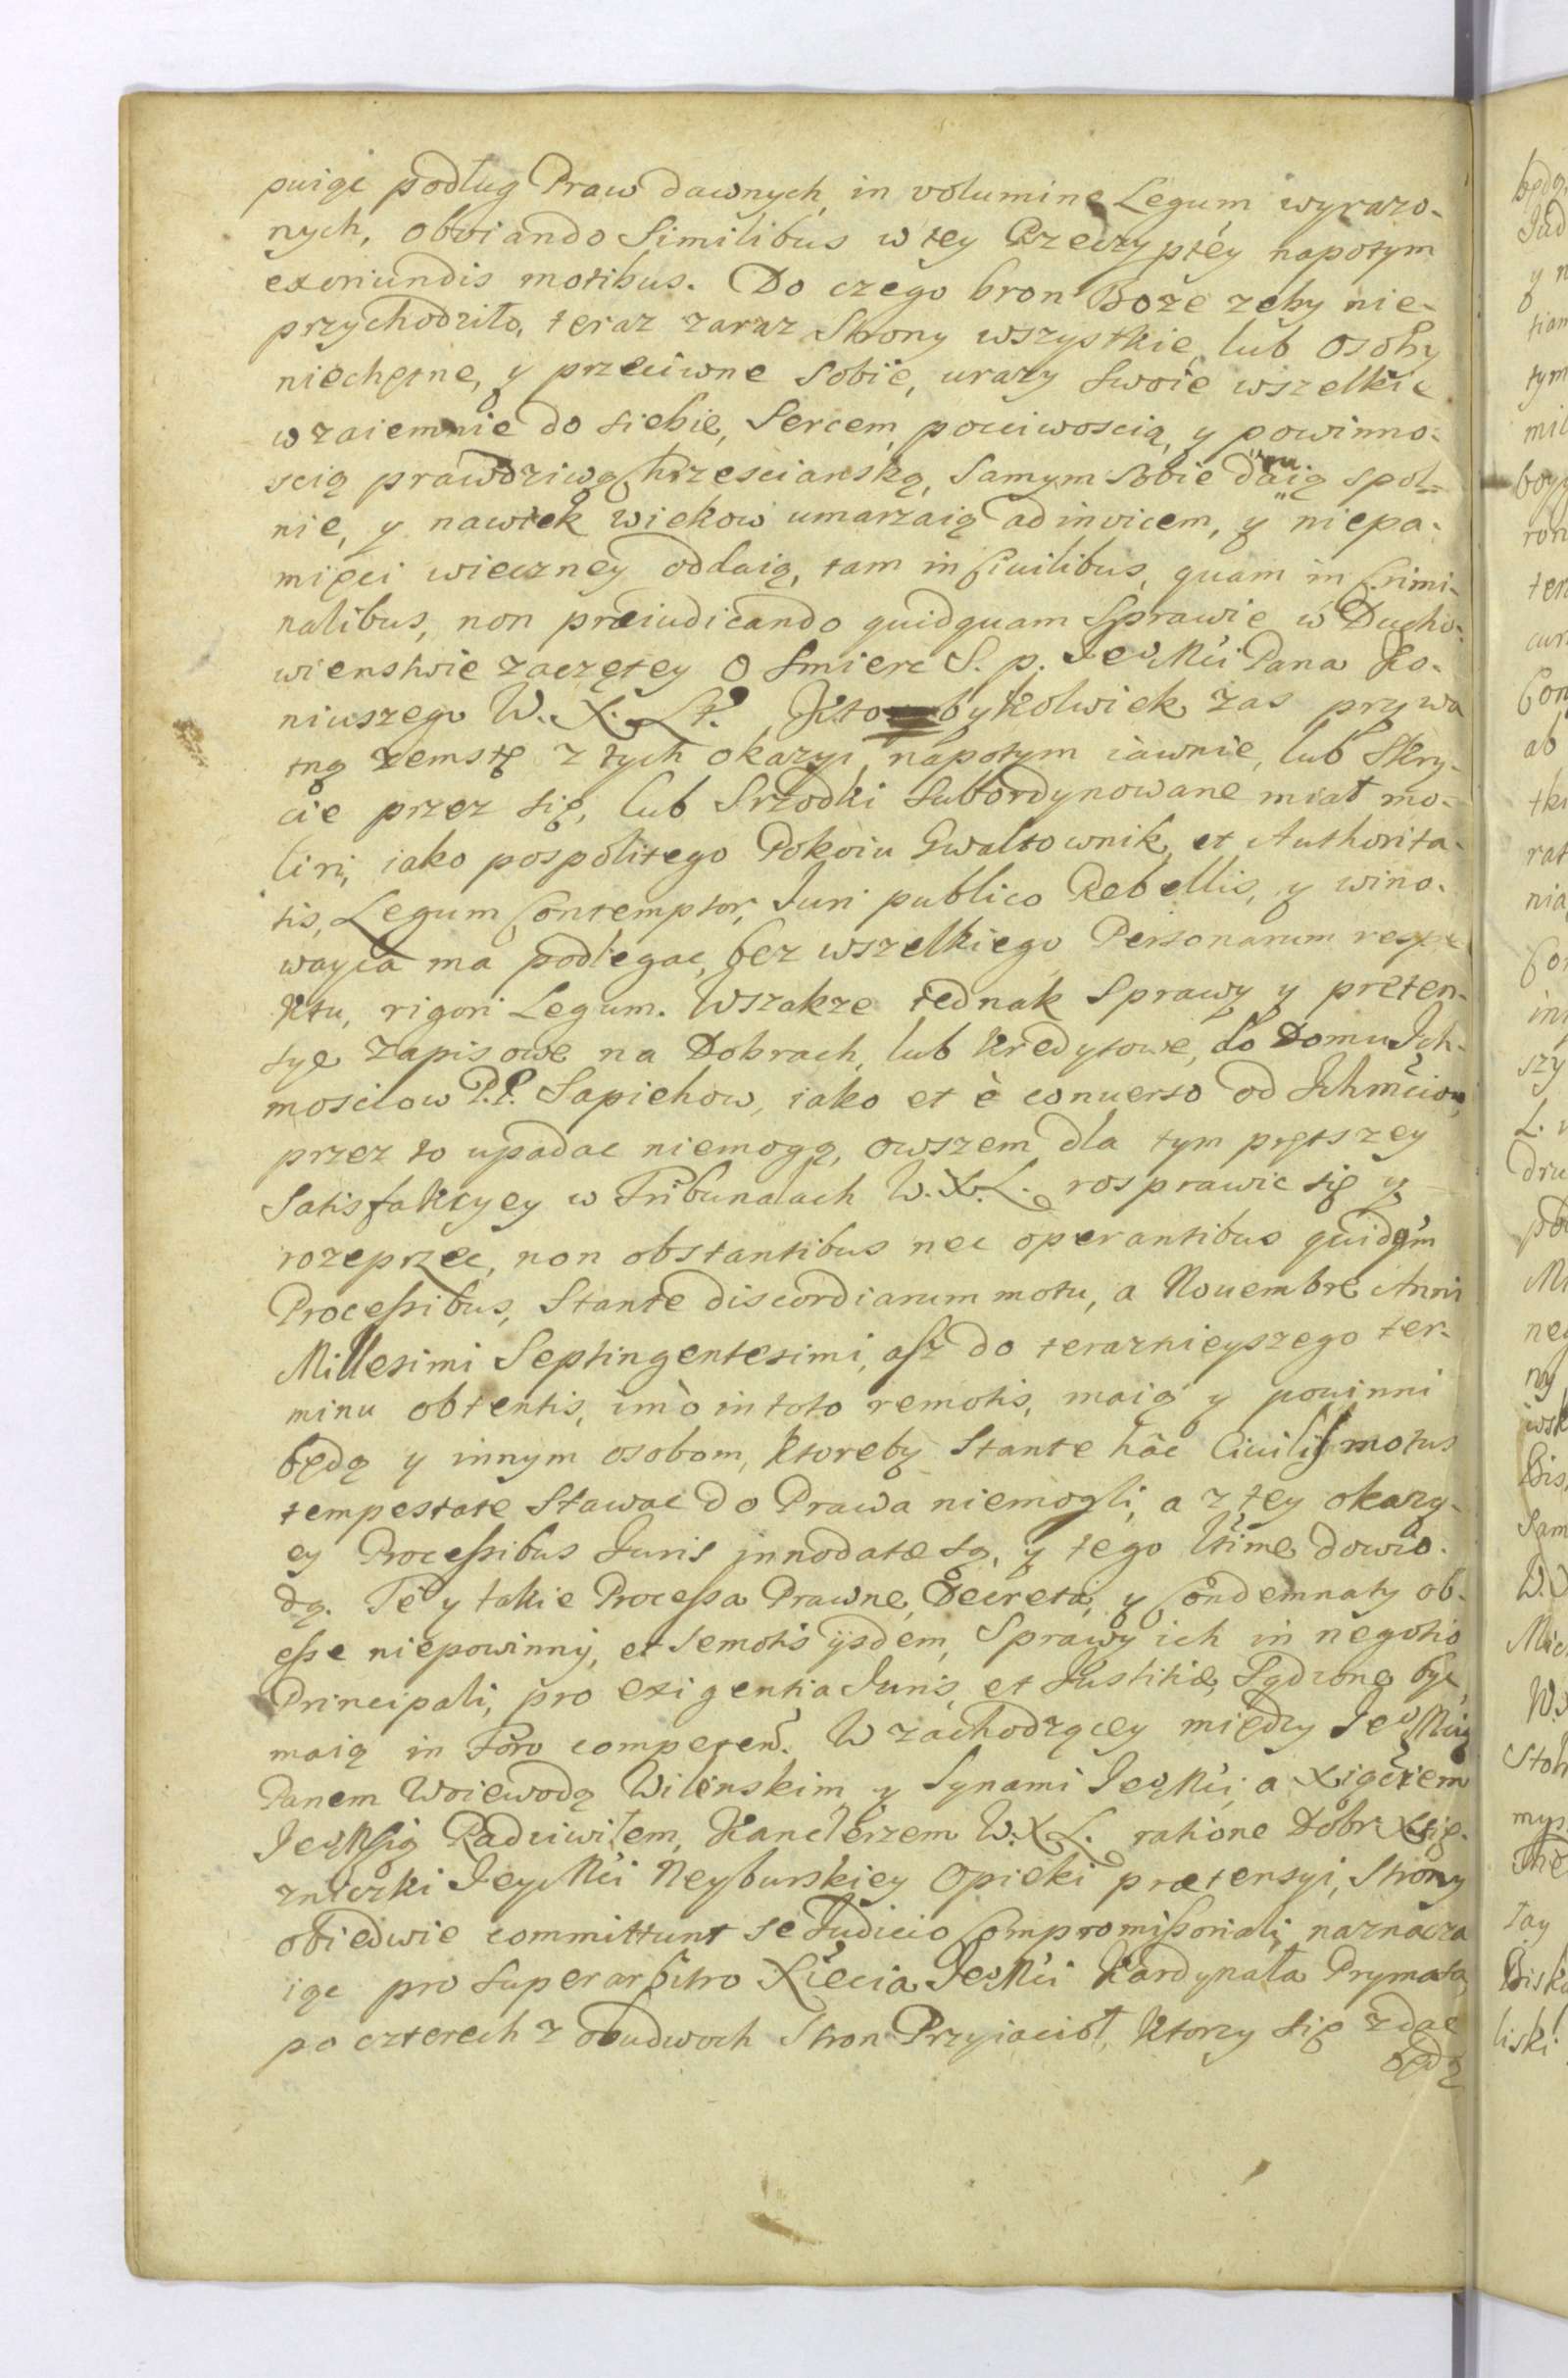 puiąc podług Praw dawnych, in volumine Legum wyrazo-
nych, obviando Similibus w tey Rzeczyptéy napotym
exoriundis motibus. Do czego bron Boże zeby nie-
przychodziło, teraz zaraz Strony wszystkie, lub osoby
niechętne, y przeciwne Sobie, urazy swoie wszelkie
wzaiemnie do siebie, Sercem, pociwoscią, y powinno-
scią prawdziwą hrzescianską, Samym Sobie daruią spol-
nie, y nawiek wiekow umarzaią ad invicem, y niepa-
mięci wieczney oddaią, tam in Civilibus, quam in Crimi-
nalibus, non præiudicando quidquam Sprawie w Ducho-
wienstwie zaczętey o Smierc S. p. Je͠o Mći Pana Ko-
niuszego W. X. Lit. Ktobykolwiek zas prywa
tną zemstę z tych okazyi napotym iawnie, lub Skry-
cie przez się, lub Srzodki subordynowane miał mo-
liri, iako pospolitego Pokoiu Gwałtownik, et Authorita-
tis, Legum Contemptor, Juri publico Rebellis, y wino-
wayca ma podlegac, bez wszelkiego Personarum respe
ktu, rigori Legum. Wszakze iednak Sprawy y preten-
sye zapisowe na Dobrach, lub Kredytowe, do Domu Jch-
mosciow P.P. Sapiehow, iako et è conuerso od Jchmćiow,
przez to upadac niemogą, owszem dla tym prętszey
Satisfakcyey w Tribunałach W.X.L. rosprawic się y
rozeprzec, non obstantibus nec operantibus quidem
Processibus, Stante discordiarum motu, a Nouembre Anni
Millesimi Septingentesimi, asz do teraznieyszego ter-
minu obtentis, imò in toto remotis, maią y powinni
będą y innym osobom, ktoreby Stante hâc Ciuilis motus
tempestate Stawac do Prawa niemogli, a z tey okazy-
ey Processibus Juris innodatæ są, y tego ltime dowio-
dą. Te y takie Processa Prawne, Decreta, y Condemnaty ob-
esse niepowinny, et semotis ijsdem, Sprawy ich in negotio
Principali, pro exigentia Juris, et Justitiæ, Sądzone byc
maią in Foro competen. W zachodzącey między Je͠o Mcią
Panem Woiewodą Wilenskim y Synami Je͠o Mći, a Xiążęciem
Je͠o Mscią Radziwiłem, Kanclerzem W.X.L. ratione Dobr Xsię-
zniczki Jey Mći Neyburskiey Opieki prætensyi, Strony
obiedwie committunt se Judicio Compromissoriali, naznacza
iąc pro superarbitro Xiecia Je͠o Mći Kardynała Prymasa,
po czterech z obudwoch Stron Przyiacioł, Ktorzy się zdac
będą